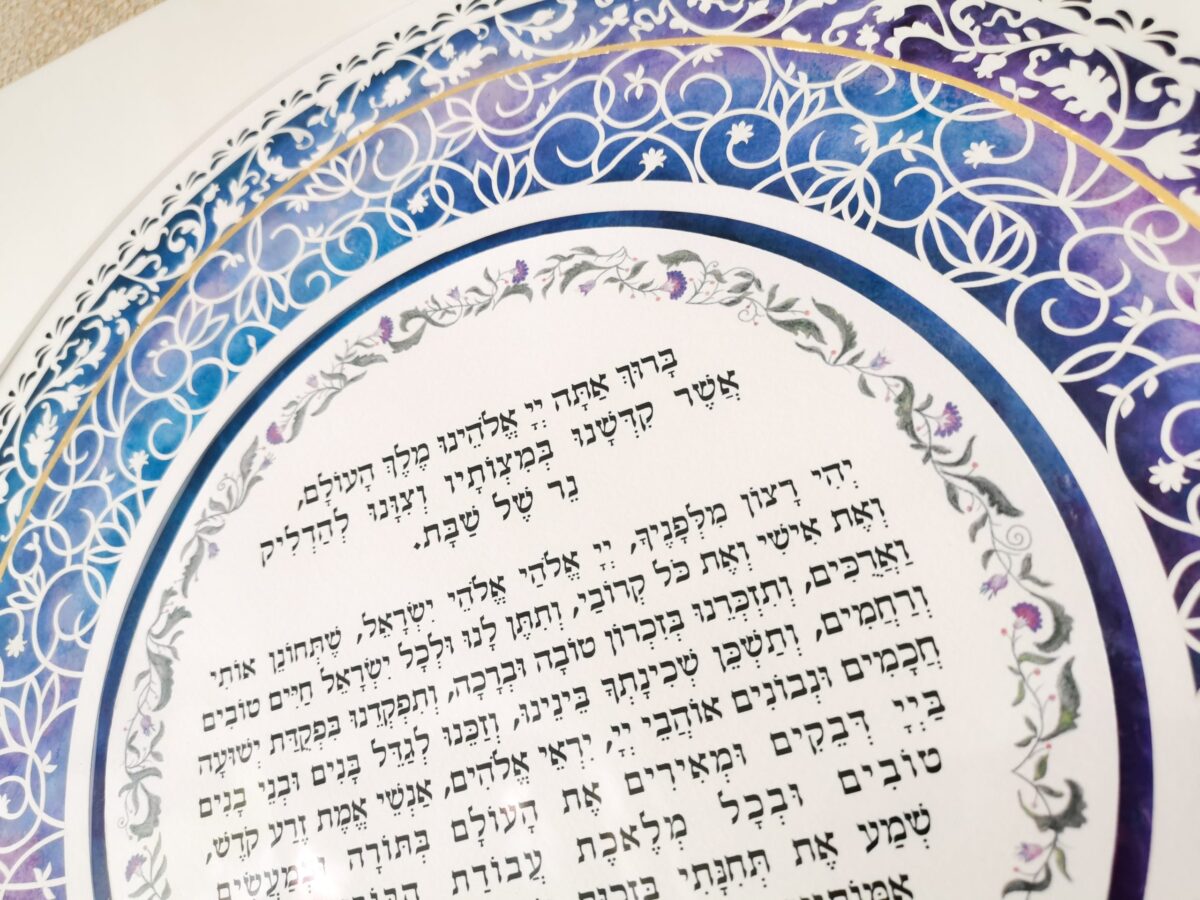 בָּרוּךְ אַתָּה יְיָ אֱלֹהֵינוּ מֶלֶךְ הָעוֹלָם,
אֲשֶׁר קִדְּשָׁנוּ בְּמִצְוֹתָיו וְצִוָּנוּ לְהַדְלִיק
נֵר שֶׁל שַׁבָּת.
יְהִי רָצוֹן מִלְּפָנֶיךָ, יְיָ אֱלֹהַי אֱלֹהֵי יִשְׂרָאֵל, שֶׁתְּחוֹנֵן אוֹתִי
וְאֶת אִישִׁי וְאֶת כֹּל קְרוֹבַי, וְתִתֵּן לָנוּ וּלְכָל יִשְׂרָאֵל חַיִּים טוֹבִים
וַאֲרֻכִּים, וְתִזְכְּרֵנוּ בְּזִכְרוֹן טוֹבָה וּבְרָכָה, וְתִפְקְדֵנוּ בִּפְקֻדַּת יְשׁוּעָה
וְרַחֲמִים, וְתַשְׁכֵּן שְׁכִינָתְךָ בֵּינֵינוּ, וְזַכֵּנוּ לְגַדֵּל בָּנִים וּבְנֵי בָנִים
חֲכָמִים וּנְבוֹנִים אוֹהֲבֵי יְיָ, יִרְאֵי אֱלֹהִים, אַנְשֵׁי אֱמֶת זֶרַע קֹדֶשׁ,
בַּיְיָ דְּבֵקִים וּמְאִירִים אֶת הָעוֹלָם בְּתוֹרָה וּבְמַעֲשִׂים
טוֹבִים וּבְכָל מְלֶאכֶת עֲבוֹדַת
שְׁמַע אֶת תְּחִנָּתִי בִּזְכוּת